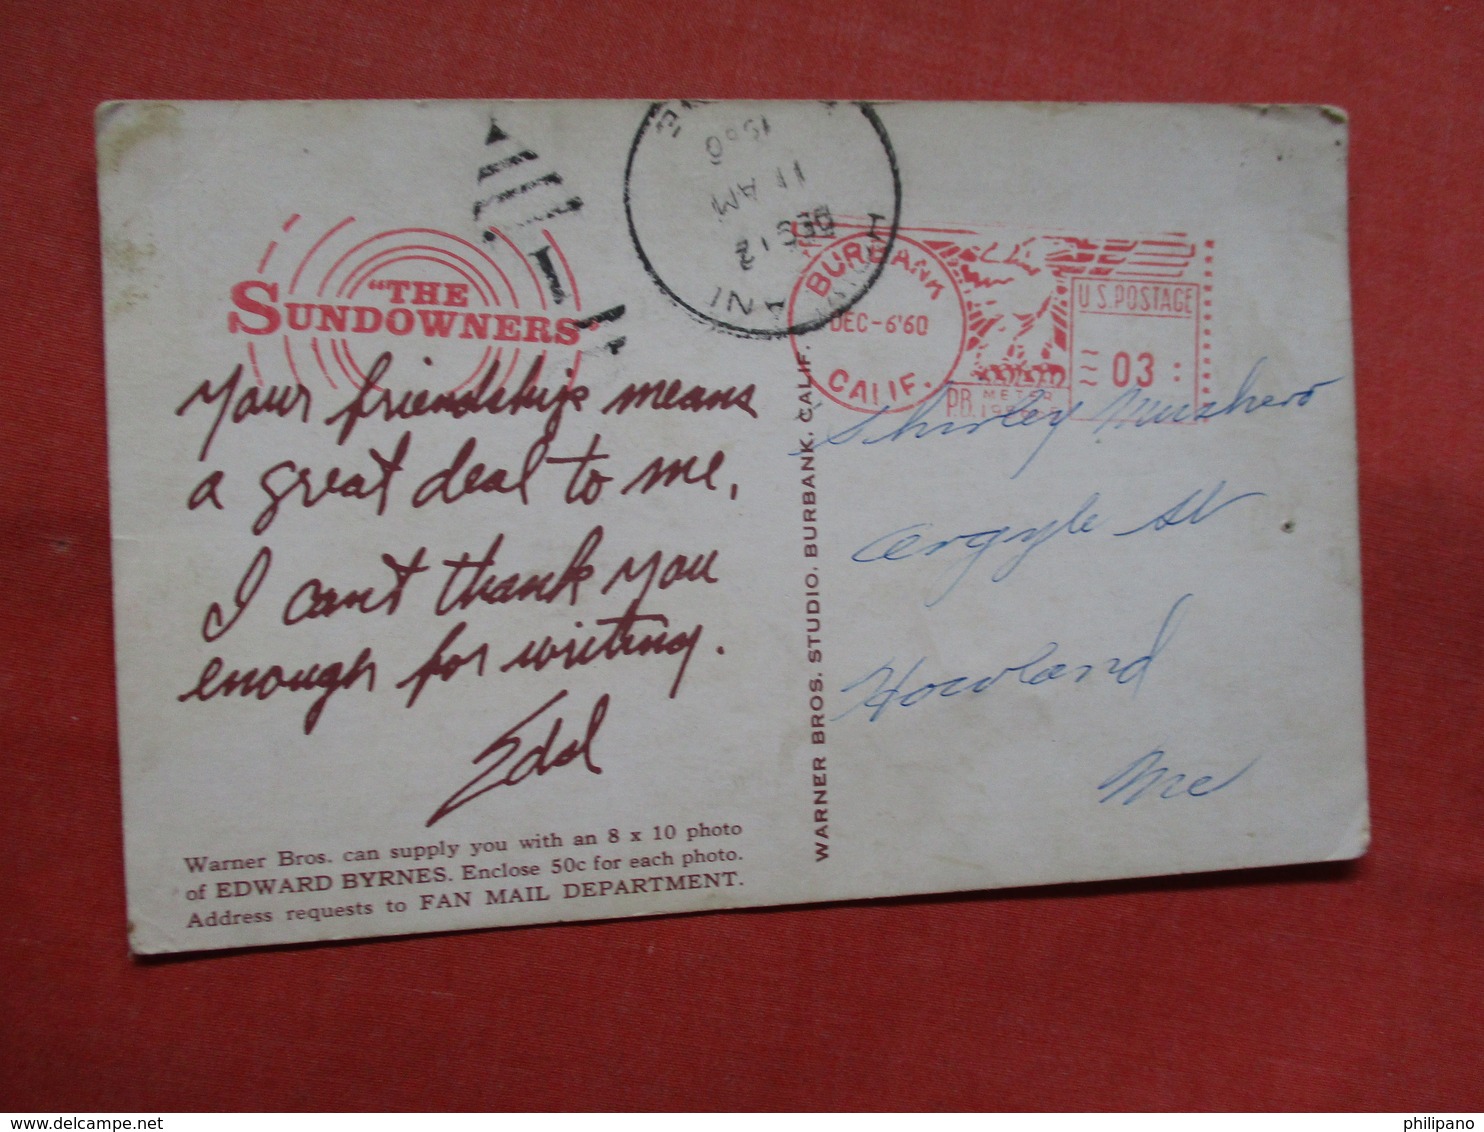 "THE
SUNDOWNERS"
Your friendship means
a great deal to me,
I can't thank you
enough for writing.
Edd
Warner Bros. can supply you with an 8 x 10 photo
of EDWARD BYRNES. Enclose 50c for each photo.
Address requests to FAN MAIL DEPARTMENT.
WARNER BROS. STUDIO. BURBANK, CALIF.
DEC 12
11 AM
BURBANK
DEC-6'60
CALIF.
U.S. POSTAGE
03
P.B. METER
Shirley
Argyle St
Howland
Me
delcampe.net
philipano